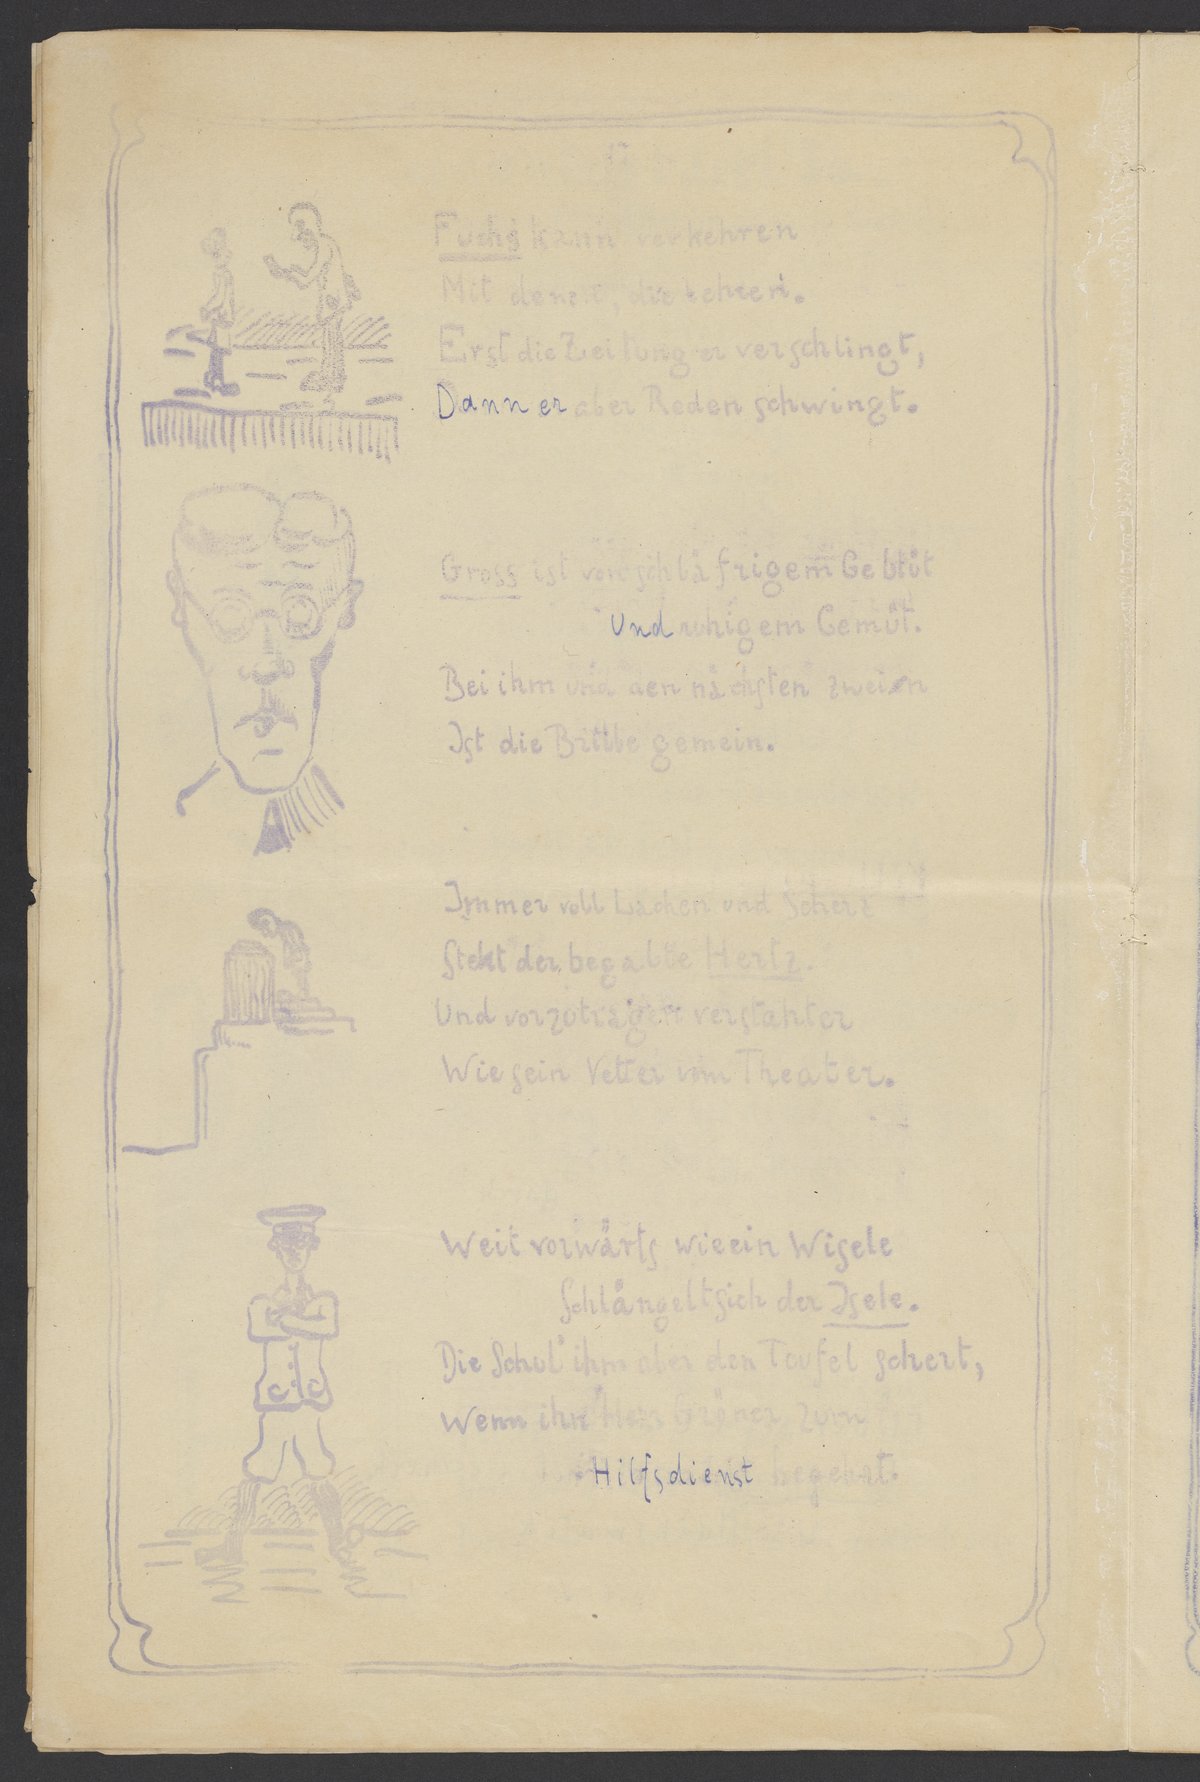 17
Fuchs kann verkehren
Mit denen, die lehren.
Erst die Zeitung er verschlingt,
Dann er aber Reden schwingt.
Gross ist von schläfrigem Geblüt
Und ruhigem Gemüt.
Bei ihm und den nächsten zweien
Ist die Brille gemein.
Immer voll Lachen und Scherz
Stekt der begabte Hertz.
Und vorzutragen verstahter
Wie sein Vetter vom Theater.
Weit vorwärts wie ein Wisele
Schlängelt sich der Isele.
Die Schul' ihm aber den Teufel schert,
Wenn ihn Herr Gröner zum
Hilfsdienst begehrt.